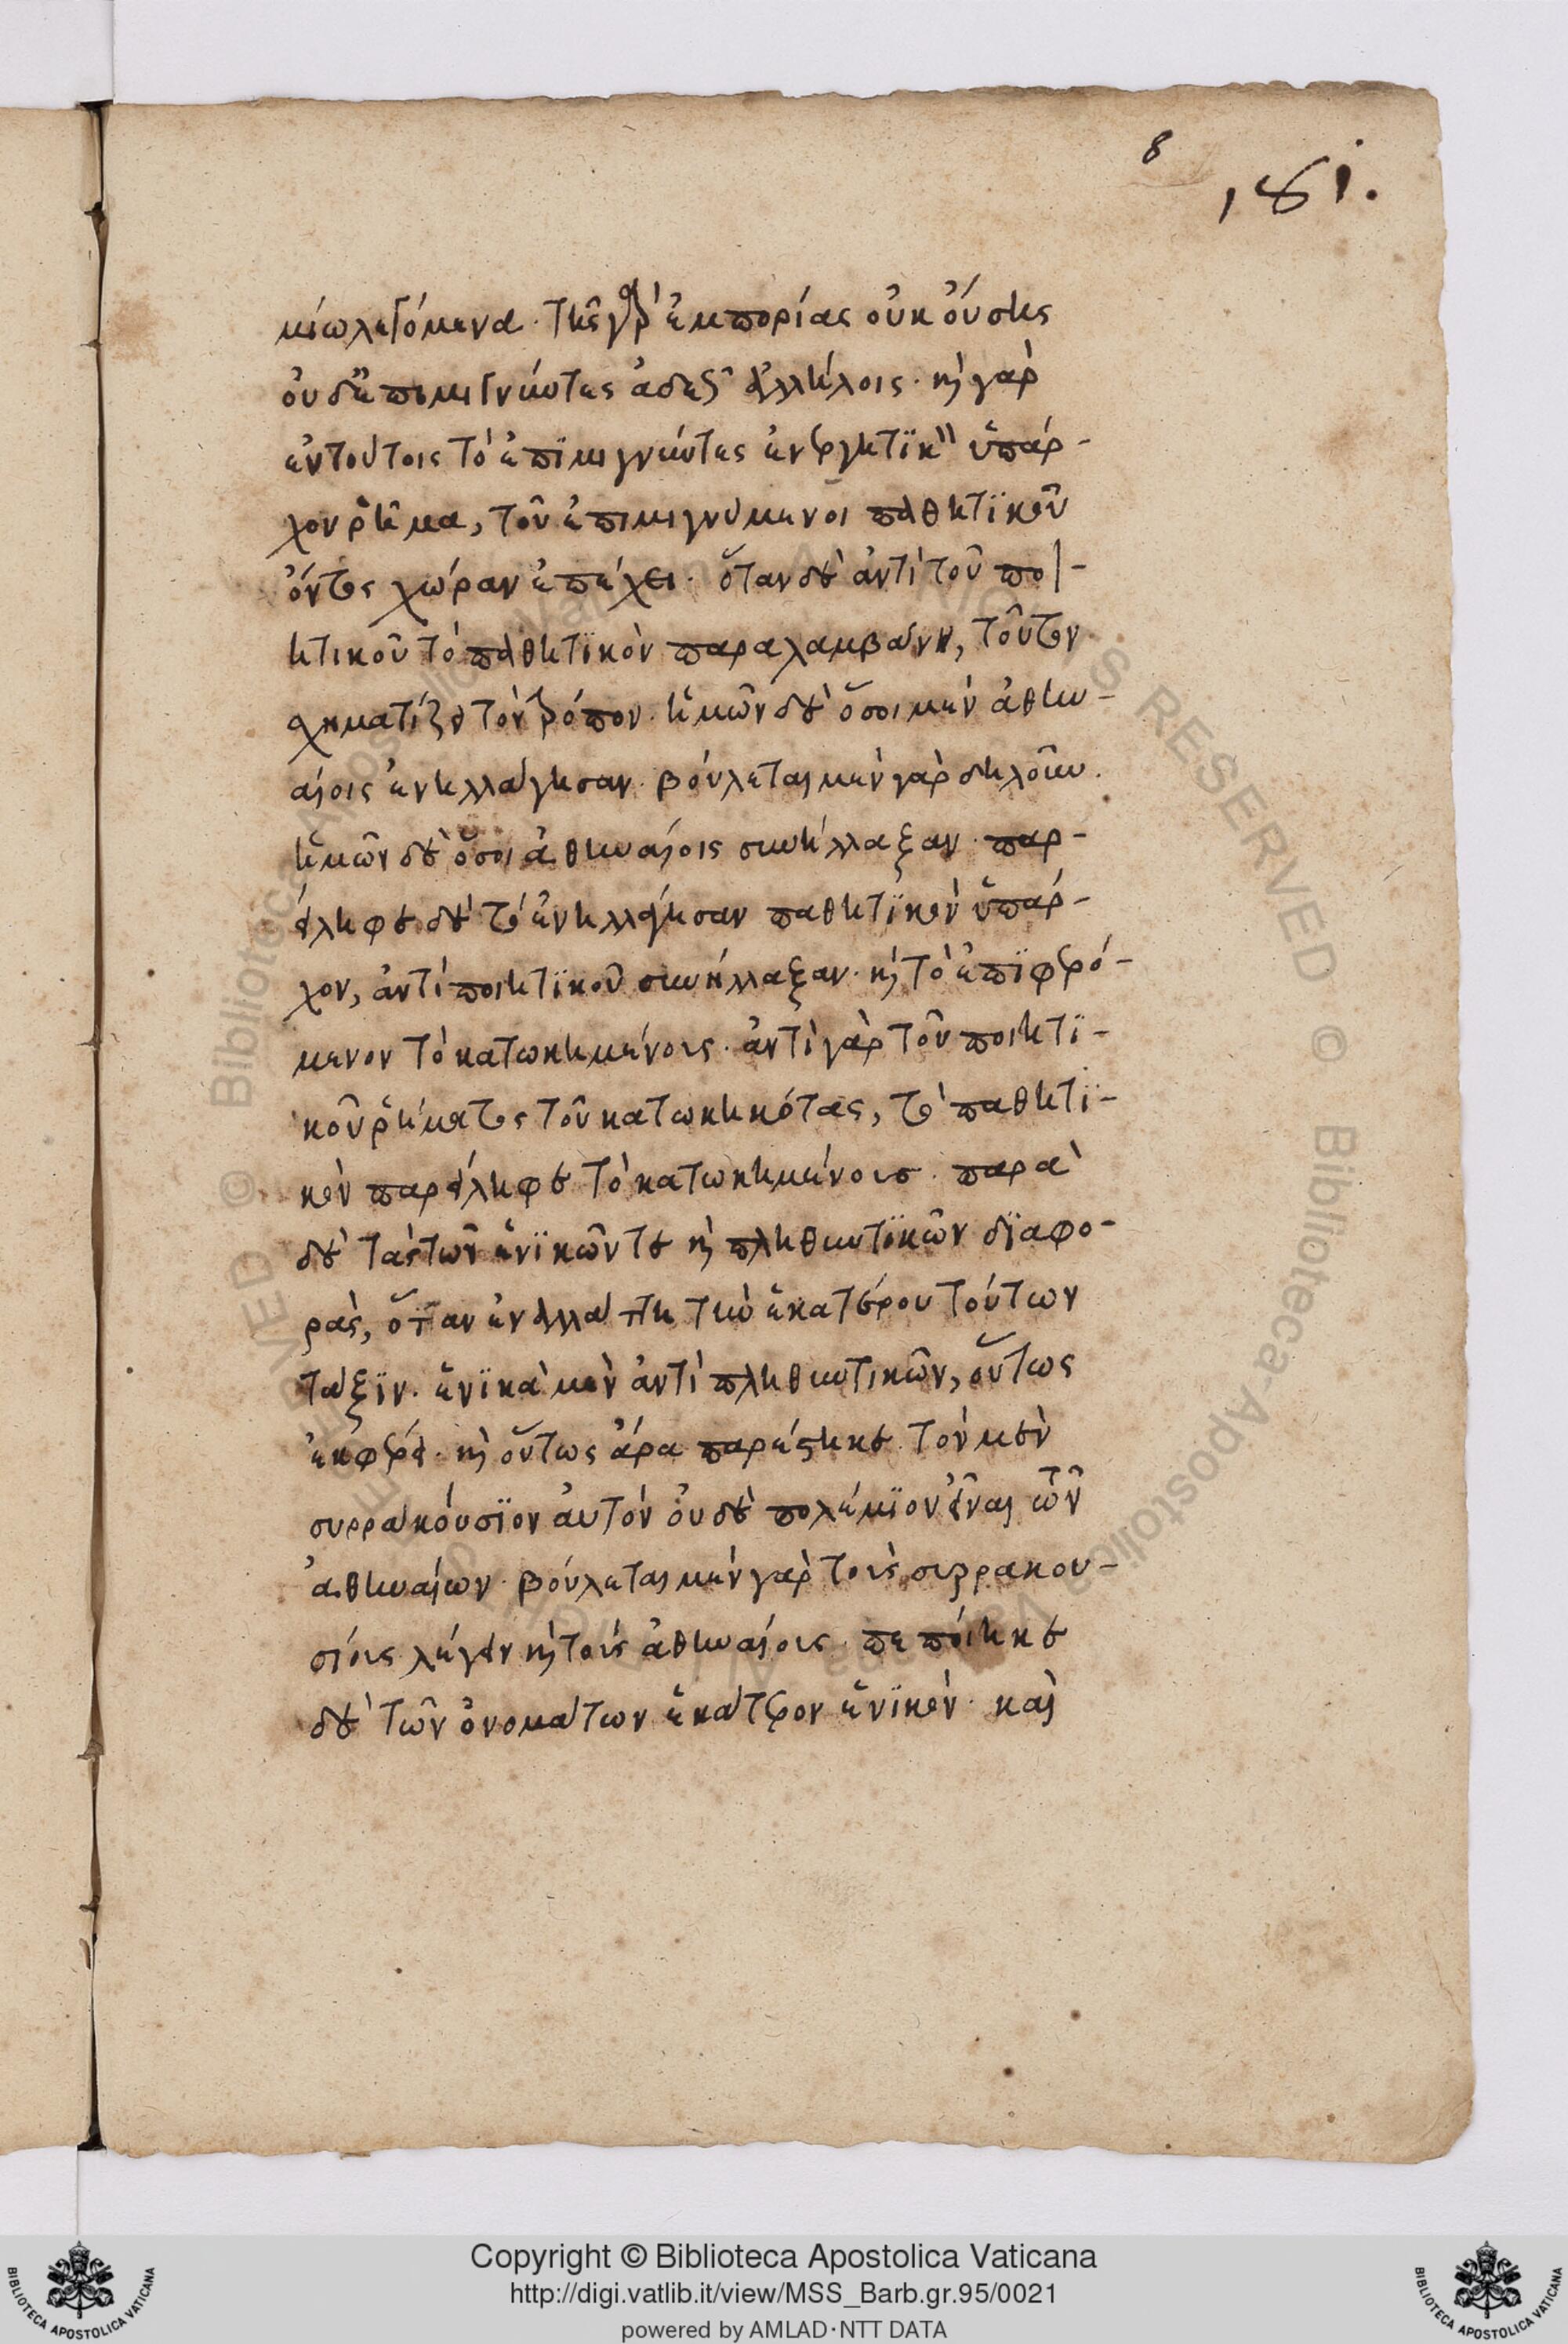 8
181.
μίω λεγόμενα. τῆς γὰρ ἐμπορίας οὐκ οὔσης
οὐδ' ἐπιμιγνύντες ἀδεῶς ἀλλήλοις. καὶ γὰρ
ἐν τούτοις τὸ ἐπϊμιγνύντες ἐνεργητϊκὸν ὑπάρ-
χον ῥῆμα, τοῦ ἐπιμιγνύμενοι παθητϊκοῦ
ὄντος χώραν ἐπέχει. ὅταν δὲ ἀντὶ τοῦ ποι-
ητικοῦ τὸ παθητϊκὸν παραλαμβάνη, τοῦτον
σχηματίζει τὸν τρόπον. ἡμῶν δὲ ὅσοι μὲν ἀθην-
αίοις ἐνηλλάγησαν. βούλεται μὲν γὰρ δηλοῦν.
ἡμῶν δὲ ὅσοι ἀθηναίοις συνήλλαξαν. παρ-
είληφε δὲ τὸ ἐνηλλάγησαν παθητϊκὸν ὑπάρ-
χον, ἀντὶ ποιητϊκοῦ συνήλλαξαν. καὶ τὸ ἐπϊφερό-
μενον τὸ κατωκημένοις. ἀντὶ γὰρ τοῦ ποιητϊ-
κοῦ ῥήματος τοῦ κατωκηκότας, τὸ παθητϊ-
κὸν παρείληφε τὸ κατωκημένοισ. παρὰ
δὲ τὰς τῶν ἑνϊκῶν τε καὶ πληθυντϊκῶν δϊαφο-
ράς, ὅταν ἐναλλάττη τὴν ἑκατέρου τούτων
τάξϊν. ἑνϊκὰ μὲν ἀντὶ πληθυντικῶν, οὕτως
ἐκφέρει. καὶ οὕτως ἄρα παρέστηκε τὸν μὲν
συρρακόυσϊον ἀυτὸν ὀυ δὲ πολέμϊον εἶναι τῶν
ἀθηναίων. βούλεται μὲν γὰρ τοὶς συρρακου-
σίοις λέγειν καὶ τοῖς ἀθηναίοις. πεποίηκε
δὲ τῶν ὀνομάτων ἑκάτερον ἑνϊκὸν. καὶ
Copyright © Biblioteca Apostolica Vaticana
http://digi.vatlib.it/view/MSS_Barb.gr.95/0021
powered by AMLAD·NTT DATA